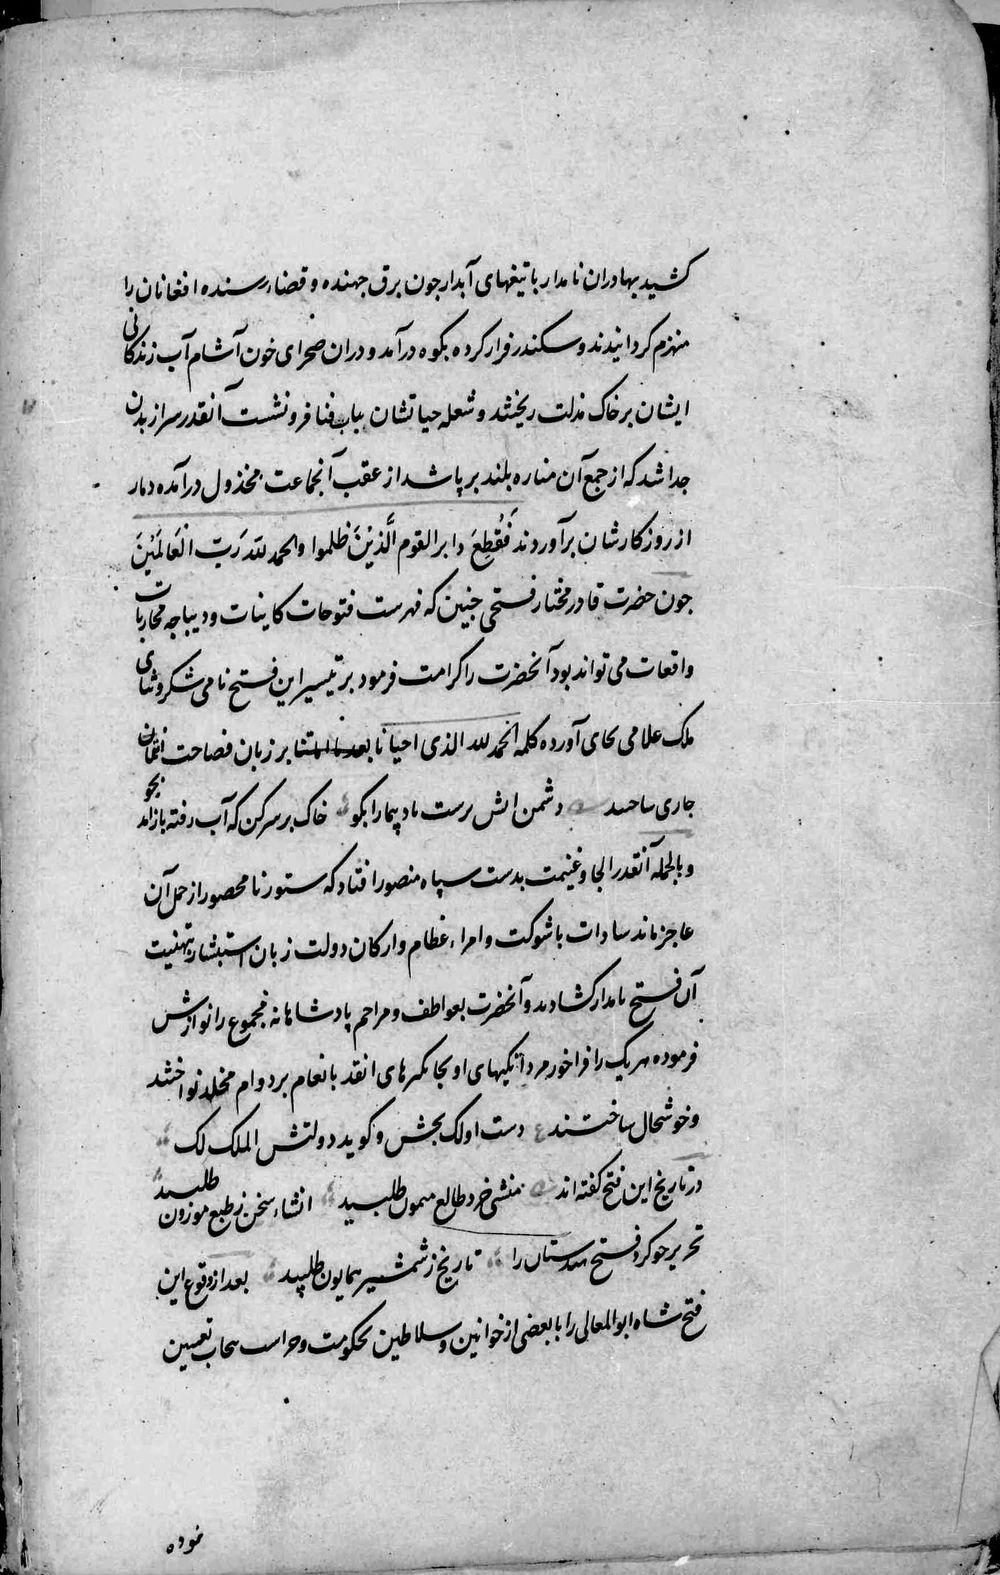 کشید بهادران نامدار با تیغهای آبدار جون برق جهنده و قضاء رسنده افغانان را
منهزم کردانیدند و سکندر فرار کرده بکوه درآمد و دران صحرای خون آشام آب زندکانی
ایشان بر خاک مذلت ریختند و شعله حیاتشان بباب فنا فرو نشست آنقدر سر از بدن
جدا شد که از جمع آن مناره بلند برپا شد از عقب آنجماعت مخذول درآمده دمار
از روزکارشان برآوردند فَقُطِعَ دابر القوم الَّذِیْنَ ظلموا والحمد لله رَبّ الْعَالَمِیْنَ
جون حضرت قادر مختار فتحی جنین که فهرست فتوحات کاینات و دیباجه محاربات
واقعات می تواند بود آنحضرت را کرامت فرمود بر تیسیر این فتح نامی شکر و ثنای
ملک علامی بجای آورده کلمه الحمد لله الذی احیانا بعد ما اماتنا بر زبان فصاحت
جاری ساخت دشمن آتش پرست باد پیما را بکو خاک بر سر کن که آب رفته باز آمد بجو
و بالجمله آنقدر الجا و غنیمت بدست سپاه منصور افتاد که ستور نا محصور از حمل آن
عاجز ماند سادات باشوکت و امراء عظام و ارکان دولت زبان استبشار بتهنیت
آن فتح نامدار کشادند و آنحضرت بعواطف و مراحم پادشاهانه مجموع را نوازش
فرموده هریک را فراخور مردانکیهای او بجایکیرهای انقد بانعام بر دوام مخلد نواختند
و خوشحال ساختند دست اولک بخش و کوید دولتش الملک لک
در تاریخ این فتح کفته اند منشی خرد طالع میمون طلبید انشاء سخن ز طبع موزون طلبید
تحریر جو کرد فتح هندستان را تاریخ ز شمشیر همایون طلبید بعد از وقوع این
فتح شاه ابوالمعالی را با بعضی از خوانین و سلاطین بحکومت و حراست پنجاب تعیین
نموده